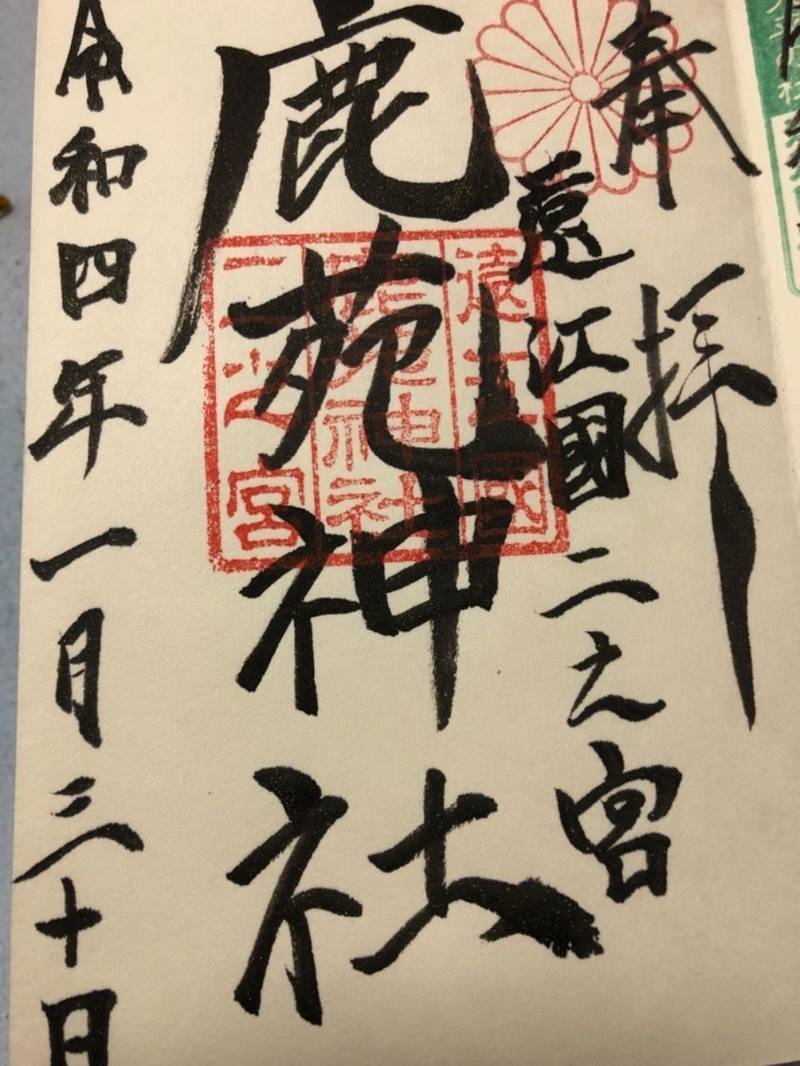 奉拝
遠江國二之宮
鹿苑神社
令和四年一月三十日
遠江國
鹿苑神社
二之宮